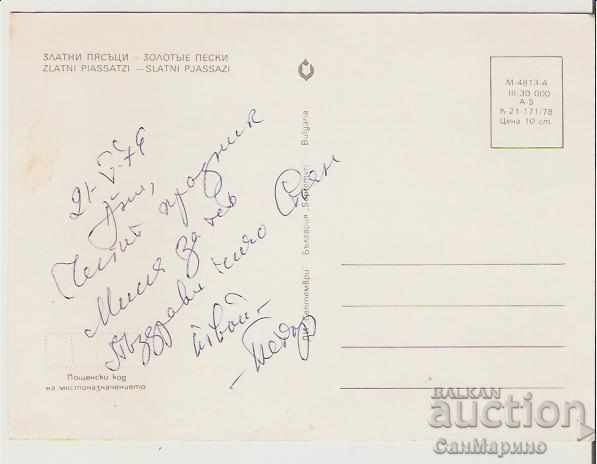 ЗЛАТНИ ПЯСЪЦИ - ЗОЛОТЫЕ ПЕСКИ
ZLATNI PIASSATZI — SLATNI PJASSAZI
М-4813-А
III 30 000
А-5
К 21-171/78
Цена 10 ст.
България
Bulgaria
Честит празник
Мисля за теб
Поздрави чичо Стоян
твой -
- Тодор
Пощенски код
на местоназначението
BALKAN
auction
СанМарино